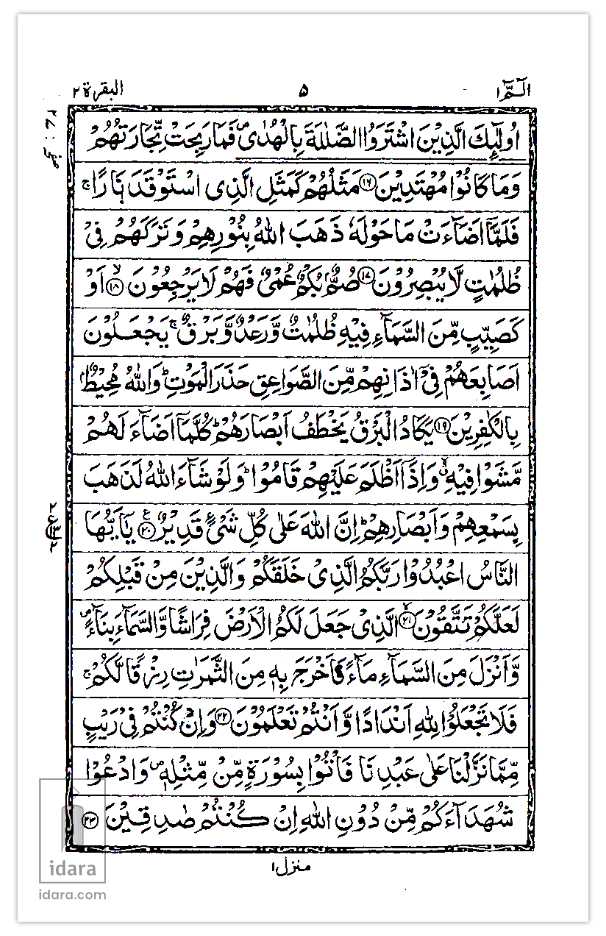 البقرة ٢ ٥ الٓمّٓ ١
اُولٰٓئِكَ الَّذِيْنَ اشْتَرَوُا الضَّلٰلَةَ بِالْهُدٰى فَمَا رَبِحَتْ تِّجَارَتُهُمْ
وَمَا كَانُوْا مُهْتَدِيْنَ ﴿١٦﴾ مَثَلُهُمْ كَمَثَلِ الَّذِى اسْتَوْقَدَ نَارًا ۚ
فَلَمَّاۤ اَضَآءَتْ مَا حَوْلَهٗ ذَهَبَ اللّٰهُ بِنُوْرِهِمْ وَتَرَكَهُمْ فِىْ
ظُلُمٰتٍ لَّا يُبْصِرُوْنَ ﴿١٧﴾ صُمٌّۢ بُكْمٌ عُمْىٌ فَهُمْ لَا يَرْجِعُوْنَ ﴿١٨﴾ اَوْ
كَصَيِّبٍ مِّنَ السَّمَآءِ فِيْهِ ظُلُمٰتٌ وَّرَعْدٌ وَّبَرْقٌ ۚ يَجْعَلُوْنَ
اَصَابِعَهُمْ فِىْۤ اٰذَانِهِمْ مِّنَ الصَّوَاعِقِ حَذَرَ الْمَوْتِ ؕ وَاللّٰهُ مُحِيْطٌۢ
بِالْكٰفِرِيْنَ ﴿١٩﴾ يَكَادُ الْبَرْقُ يَخْطَفُ اَبْصَارَهُمْ ؕ كُلَّمَاۤ اَضَآءَ لَهُمْ
مَّشَوْا فِيْهِ ۙ وَاِذَاۤ اَظْلَمَ عَلَيْهِمْ قَامُوْا ؕ وَلَوْ شَآءَ اللّٰهُ لَذَهَبَ
بِسَمْعِهِمْ وَاَبْصَارِهِمْ ؕ اِنَّ اللّٰهَ عَلٰى كُلِّ شَىْءٍ قَدِيْرٌ ﴿٢٠﴾ يٰۤاَيُّهَا
النَّاسُ اعْبُدُوْا رَبَّكُمُ الَّذِىْ خَلَقَكُمْ وَالَّذِيْنَ مِنْ قَبْلِكُمْ
لَعَلَّكُمْ تَتَّقُوْنَ ﴿٢١﴾ الَّذِىْ جَعَلَ لَكُمُ الْاَرْضَ فِرَاشًا وَّالسَّمَآءَ بِنَآءً
وَّاَنْزَلَ مِنَ السَّمَآءِ مَآءً فَاَخْرَجَ بِهٖ مِنَ الثَّمَرٰتِ رِزْقًا لَّكُمْ ۚ
فَلَا تَجْعَلُوْا لِلّٰهِ اَنْدَادًا وَّاَنْتُمْ تَعْلَمُوْنَ ﴿٢٢﴾ وَاِنْ كُنْتُمْ فِىْ رَيْبٍ
مِّمَّا نَزَّلْنَا عَلٰى عَبْدِنَا فَاْتُوْا بِسُوْرَةٍ مِّنْ مِّثْلِهٖ وَادْعُوْا
شُهَدَآءَكُمْ مِّنْ دُوْنِ اللّٰهِ اِنْ كُنْتُمْ صٰدِقِيْنَ ﴿٢٣﴾
منزل ١
idara
idara.com